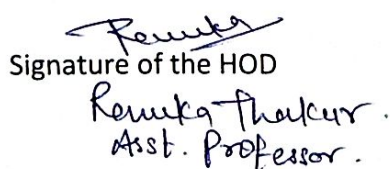 Renuka
Signature of the HOD
Renuka Thakur.
Asst. Professor.